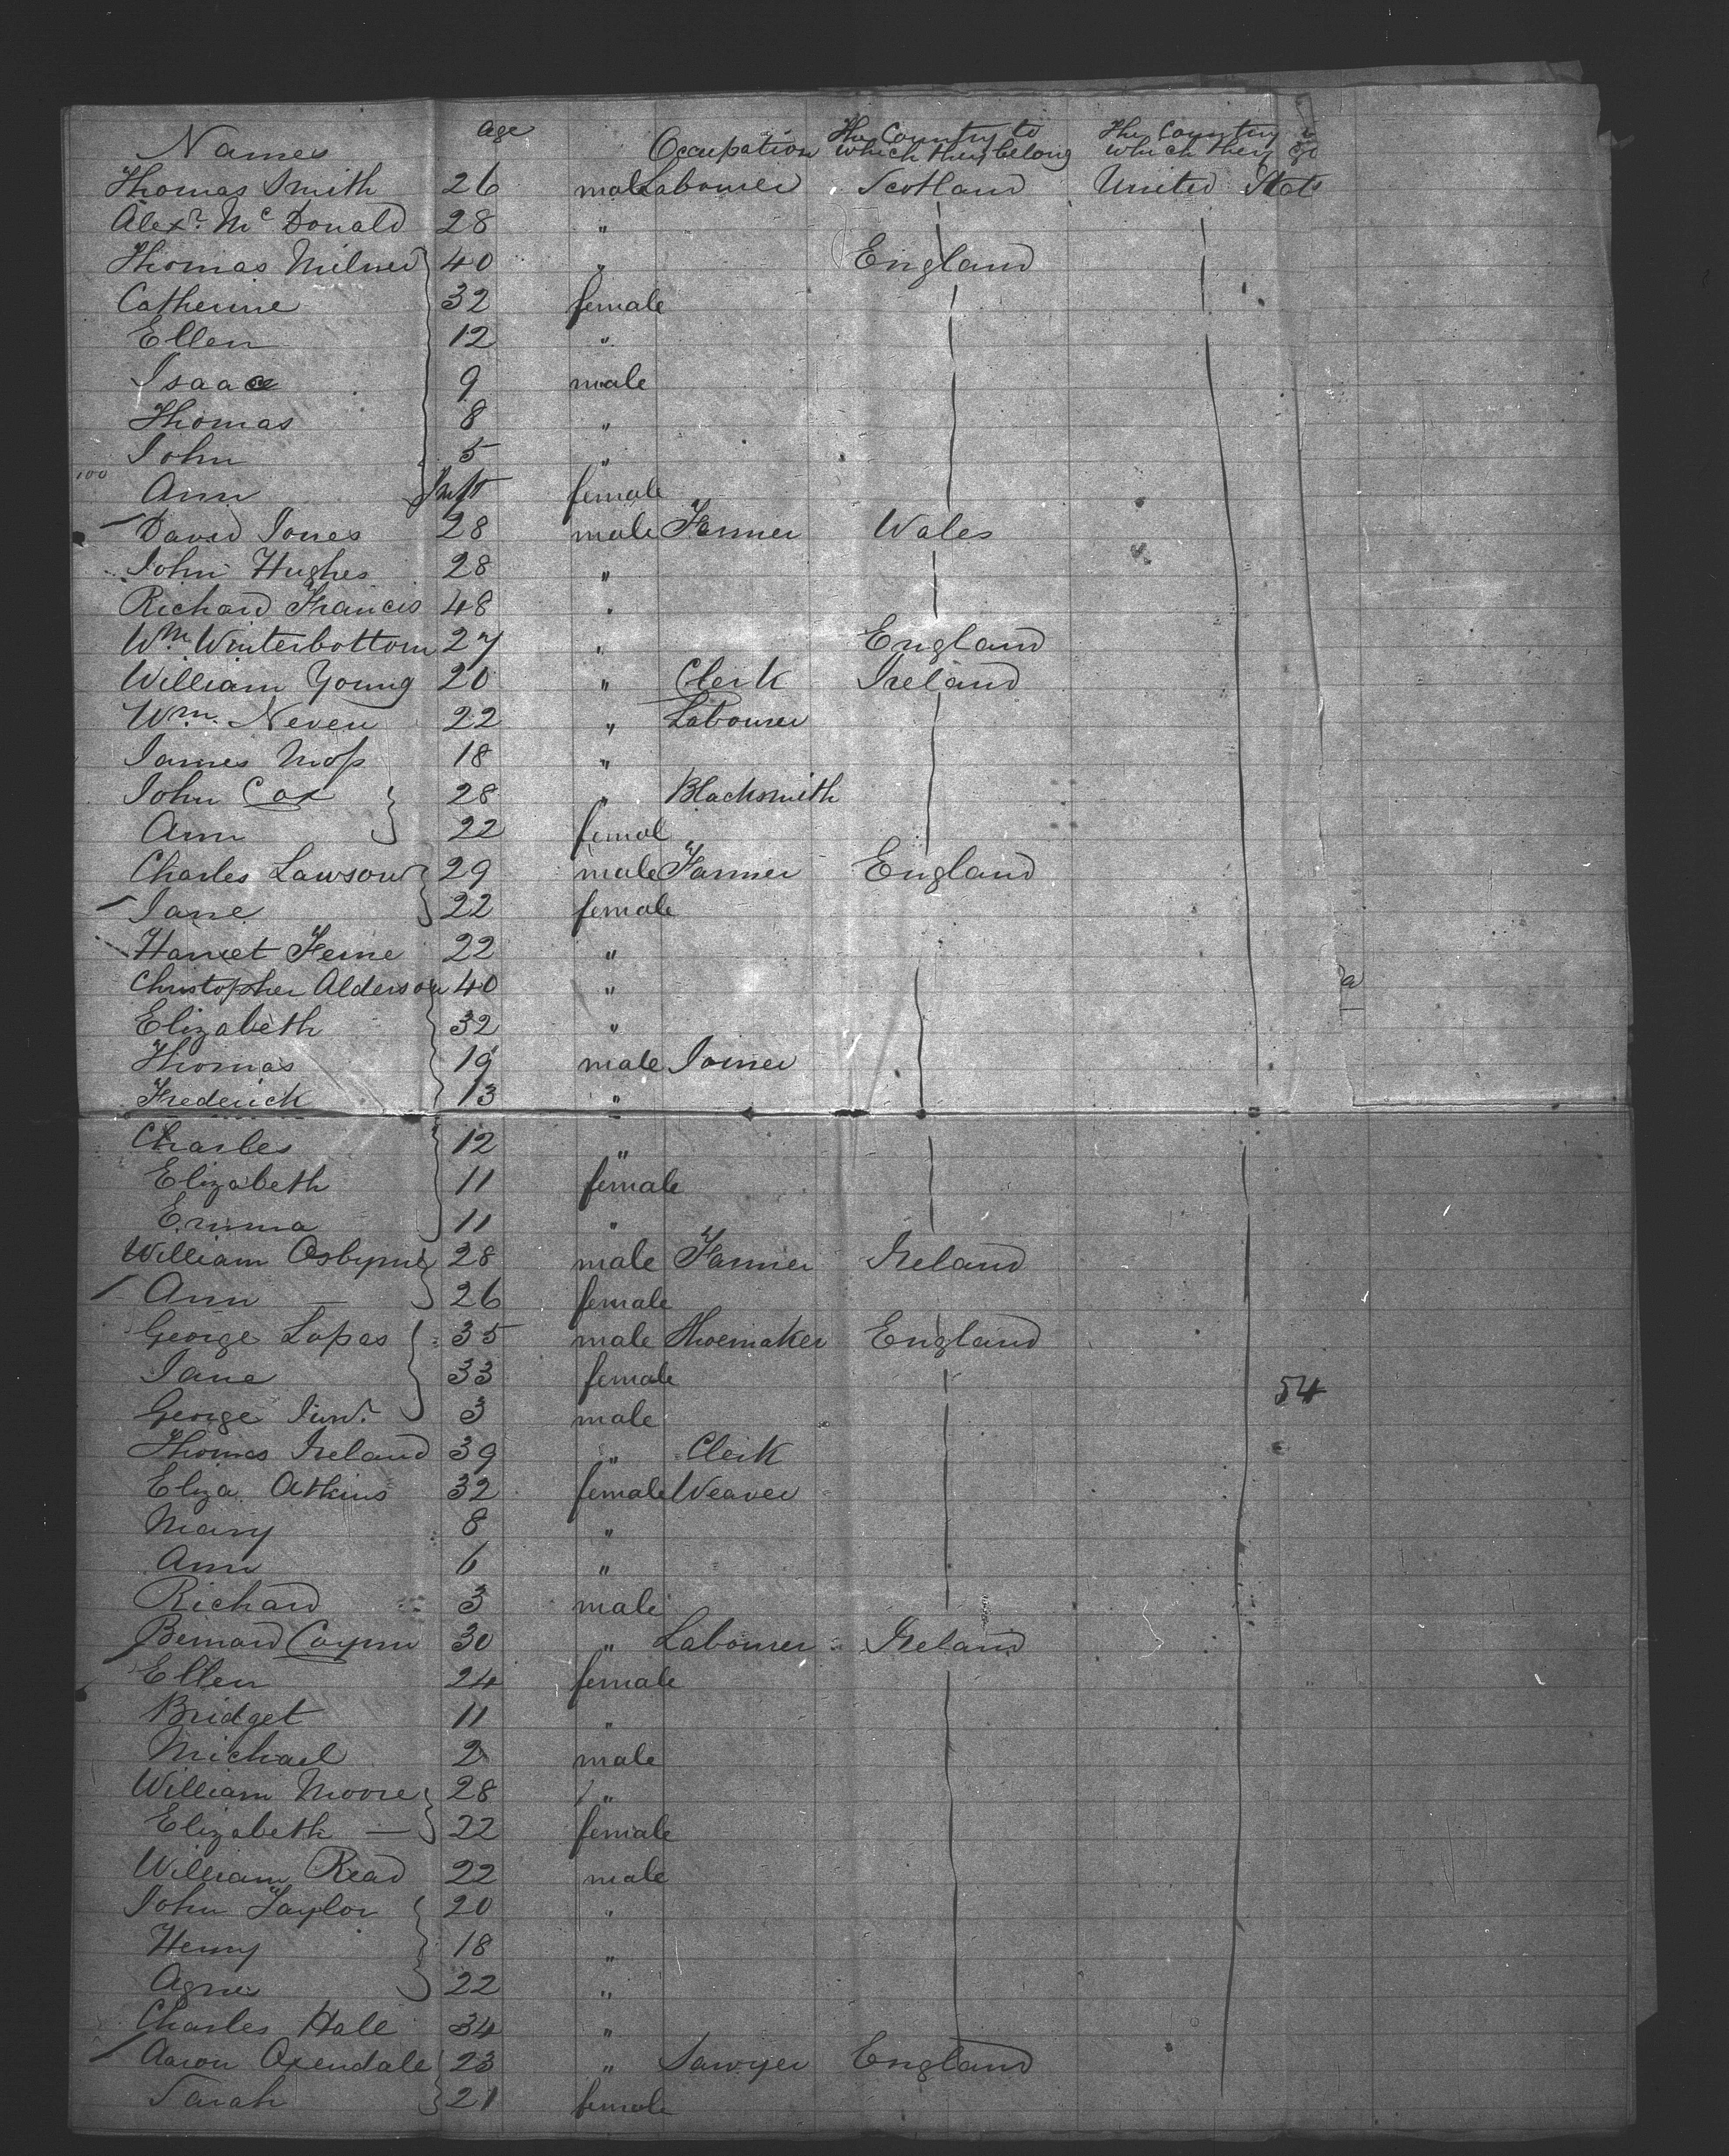 Names age Occupation The Country to which they belong The Country to which they go
Thomas Smith 26 male Labourer Scotland United Stats
Alexr. McDonald 28 "
Thomas Milner 40 " England
Catherine 32 female
Ellen 12 "
Isaac 9 male
Thomas 8 "
John 5 "
100 Ann Inft female
David Jones 28 male Farmer Wales
John Hughes 28 "
Richard Francis 48 "
Wm. Winterbottom 27 " England
William Young 20 " Clerk Ireland
Wm. Neven 22 " Labourer
James Moss 18 "
John Cox 28 " Blacksmith
Ann 22 femal
Charles Lawson 29 male Farmer England
Jane 22 female
Harriet Ferne 22 "
Christopher Alderson 40 "
Elizabeth 32 "
Thomas 19 male Joiner
Frederick 13 "
Charles 12 "
Elizabeth 11 female
Emma 11 "
William Osbyrne 28 male Farmer Ireland
Ann — 26 female
George Lopas 35 male Shoemaker England
Jane 33 female
54
George Junr. 3 male
Thomas Ireland 39 " Clerk
Eliza Atkins 32 female Weaver
Mary 8 "
Ann 6 "
Richard 3 male
Bernard 30 " Labourer Ireland
Ellen 24 female
Bridget 11 "
Michael 2 male
William Moore 28 "
Elizabeth — 22 female
William Read 22 male
John Taylor 20 "
Henry 18 "
Agnes 22 "
Charles Hale 34 "
Aaron Oxendale 23 " Sawyer England
Sarah 21 female